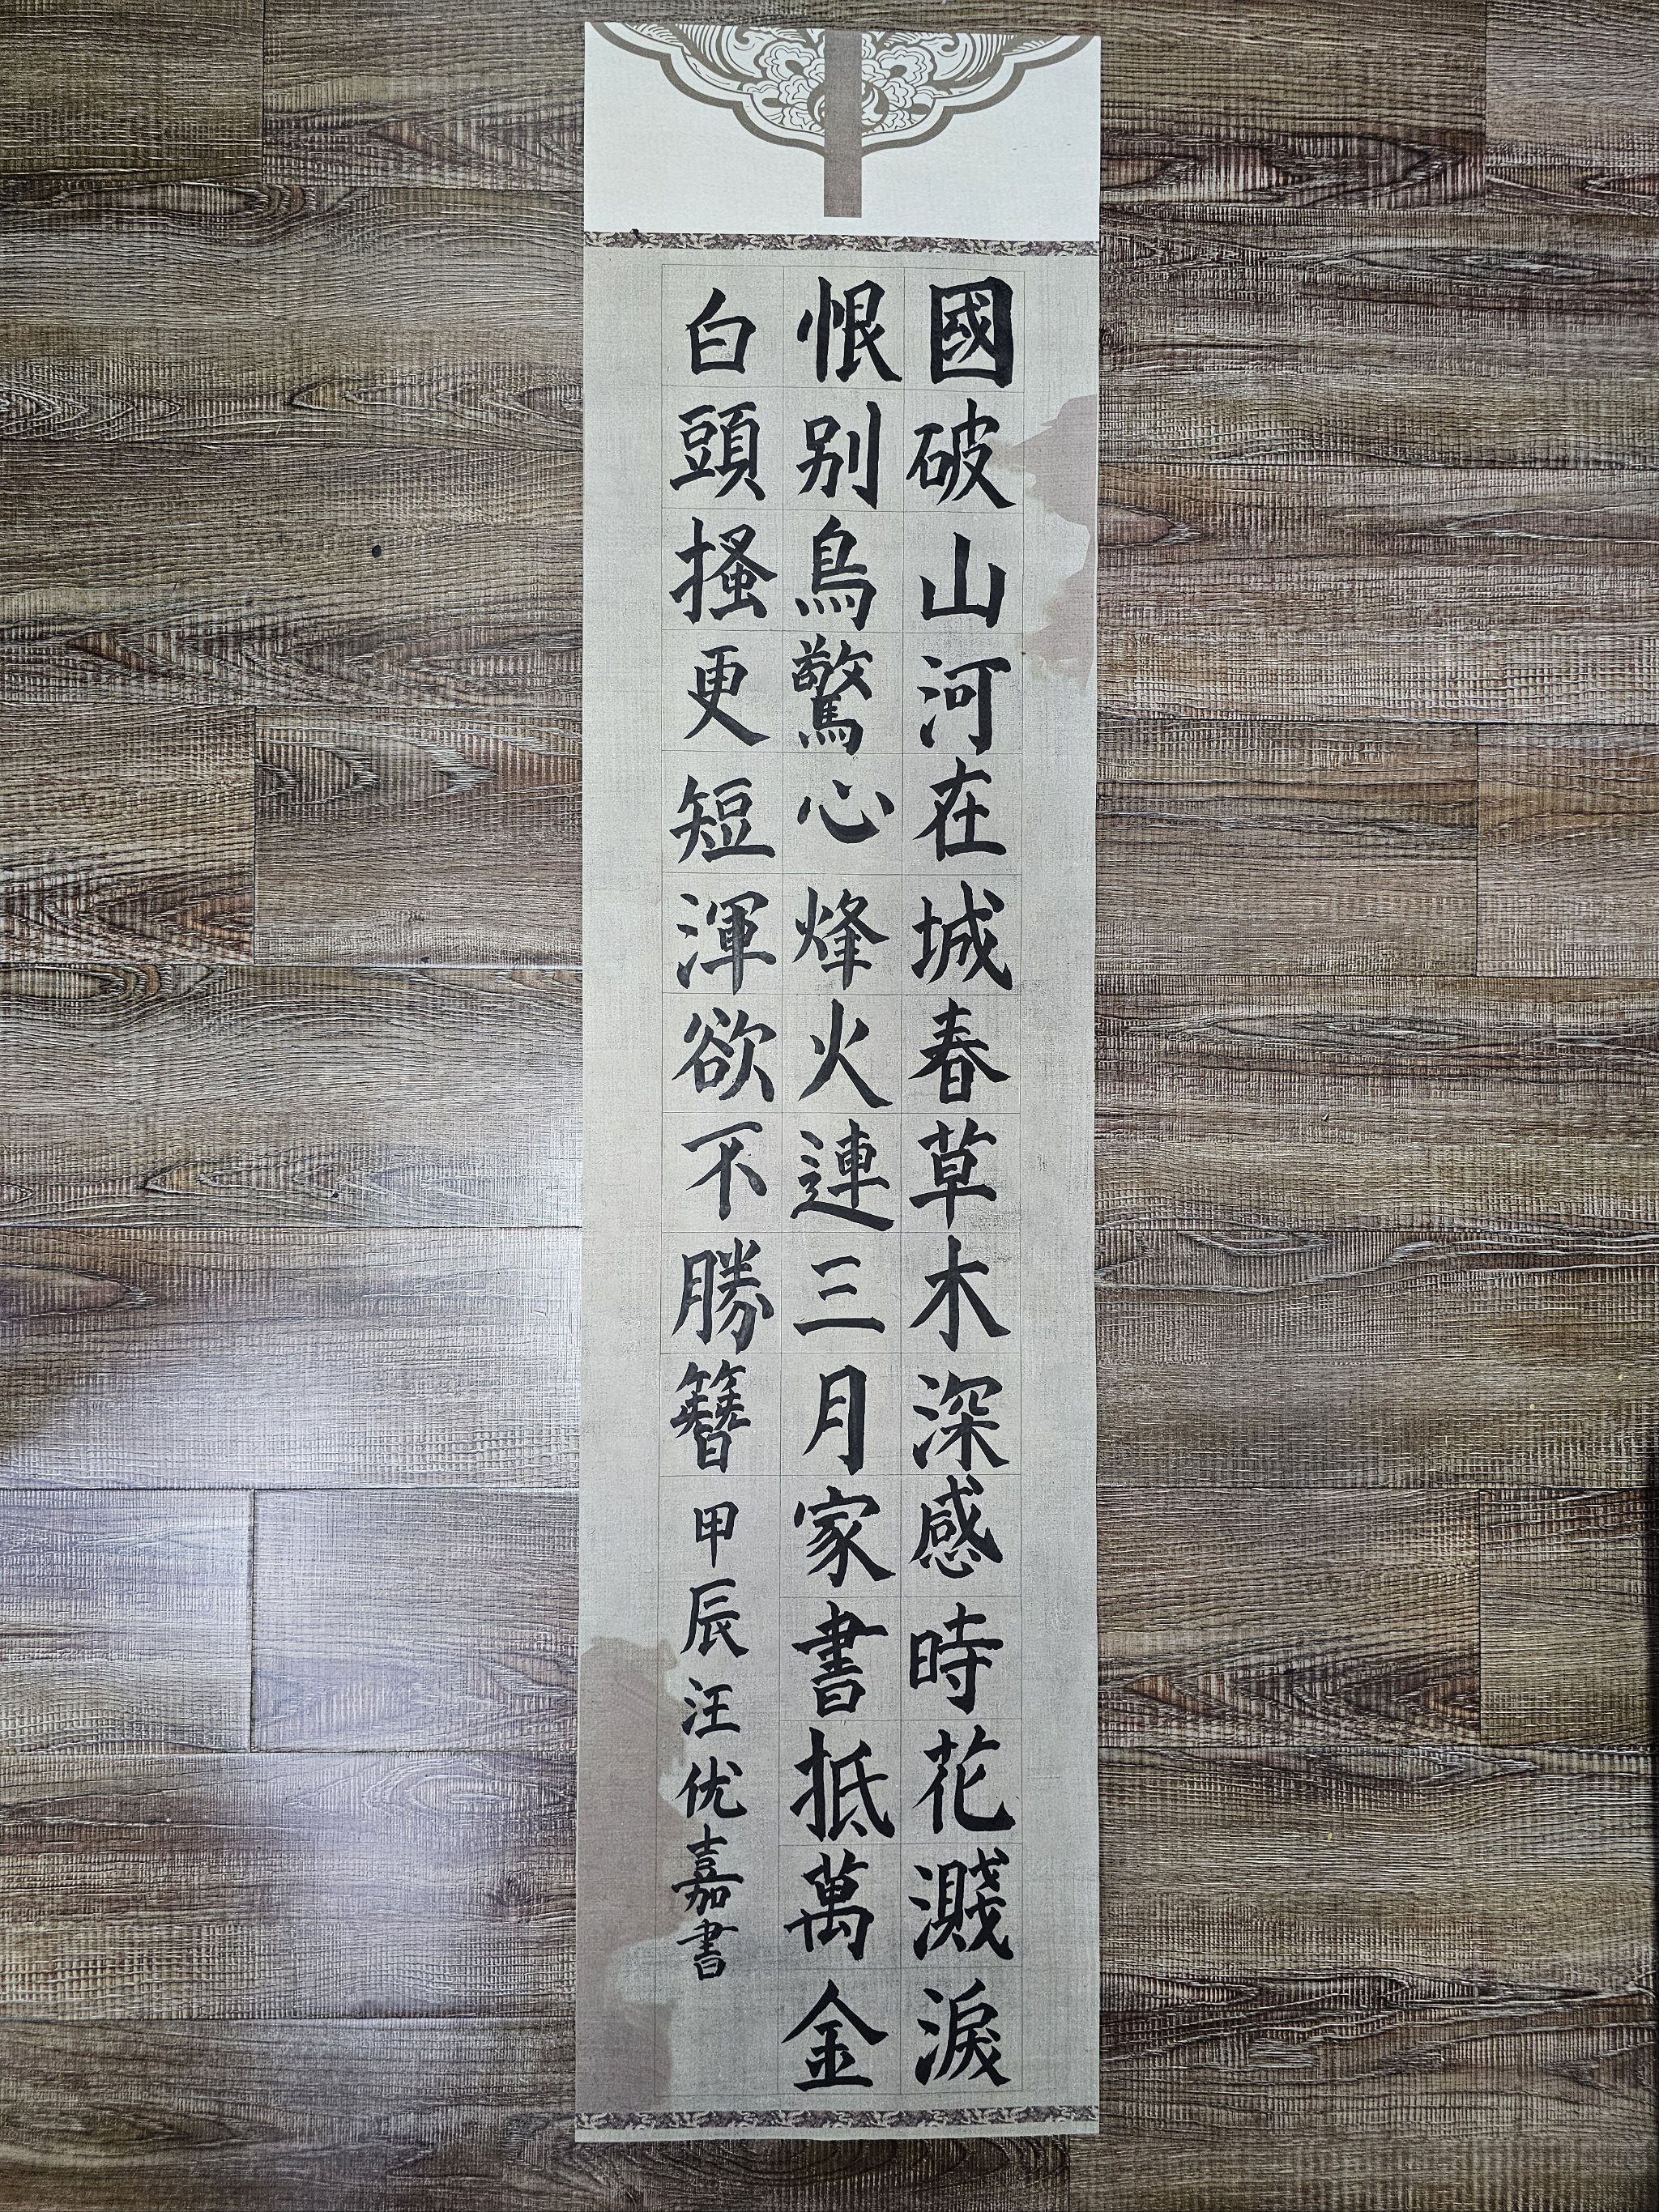 國破山河在城春草木深感時花濺淚
恨别鳥驚心烽火連三月家書抵萬金
白頭搔更短渾欲不勝簪甲辰汪优嘉書